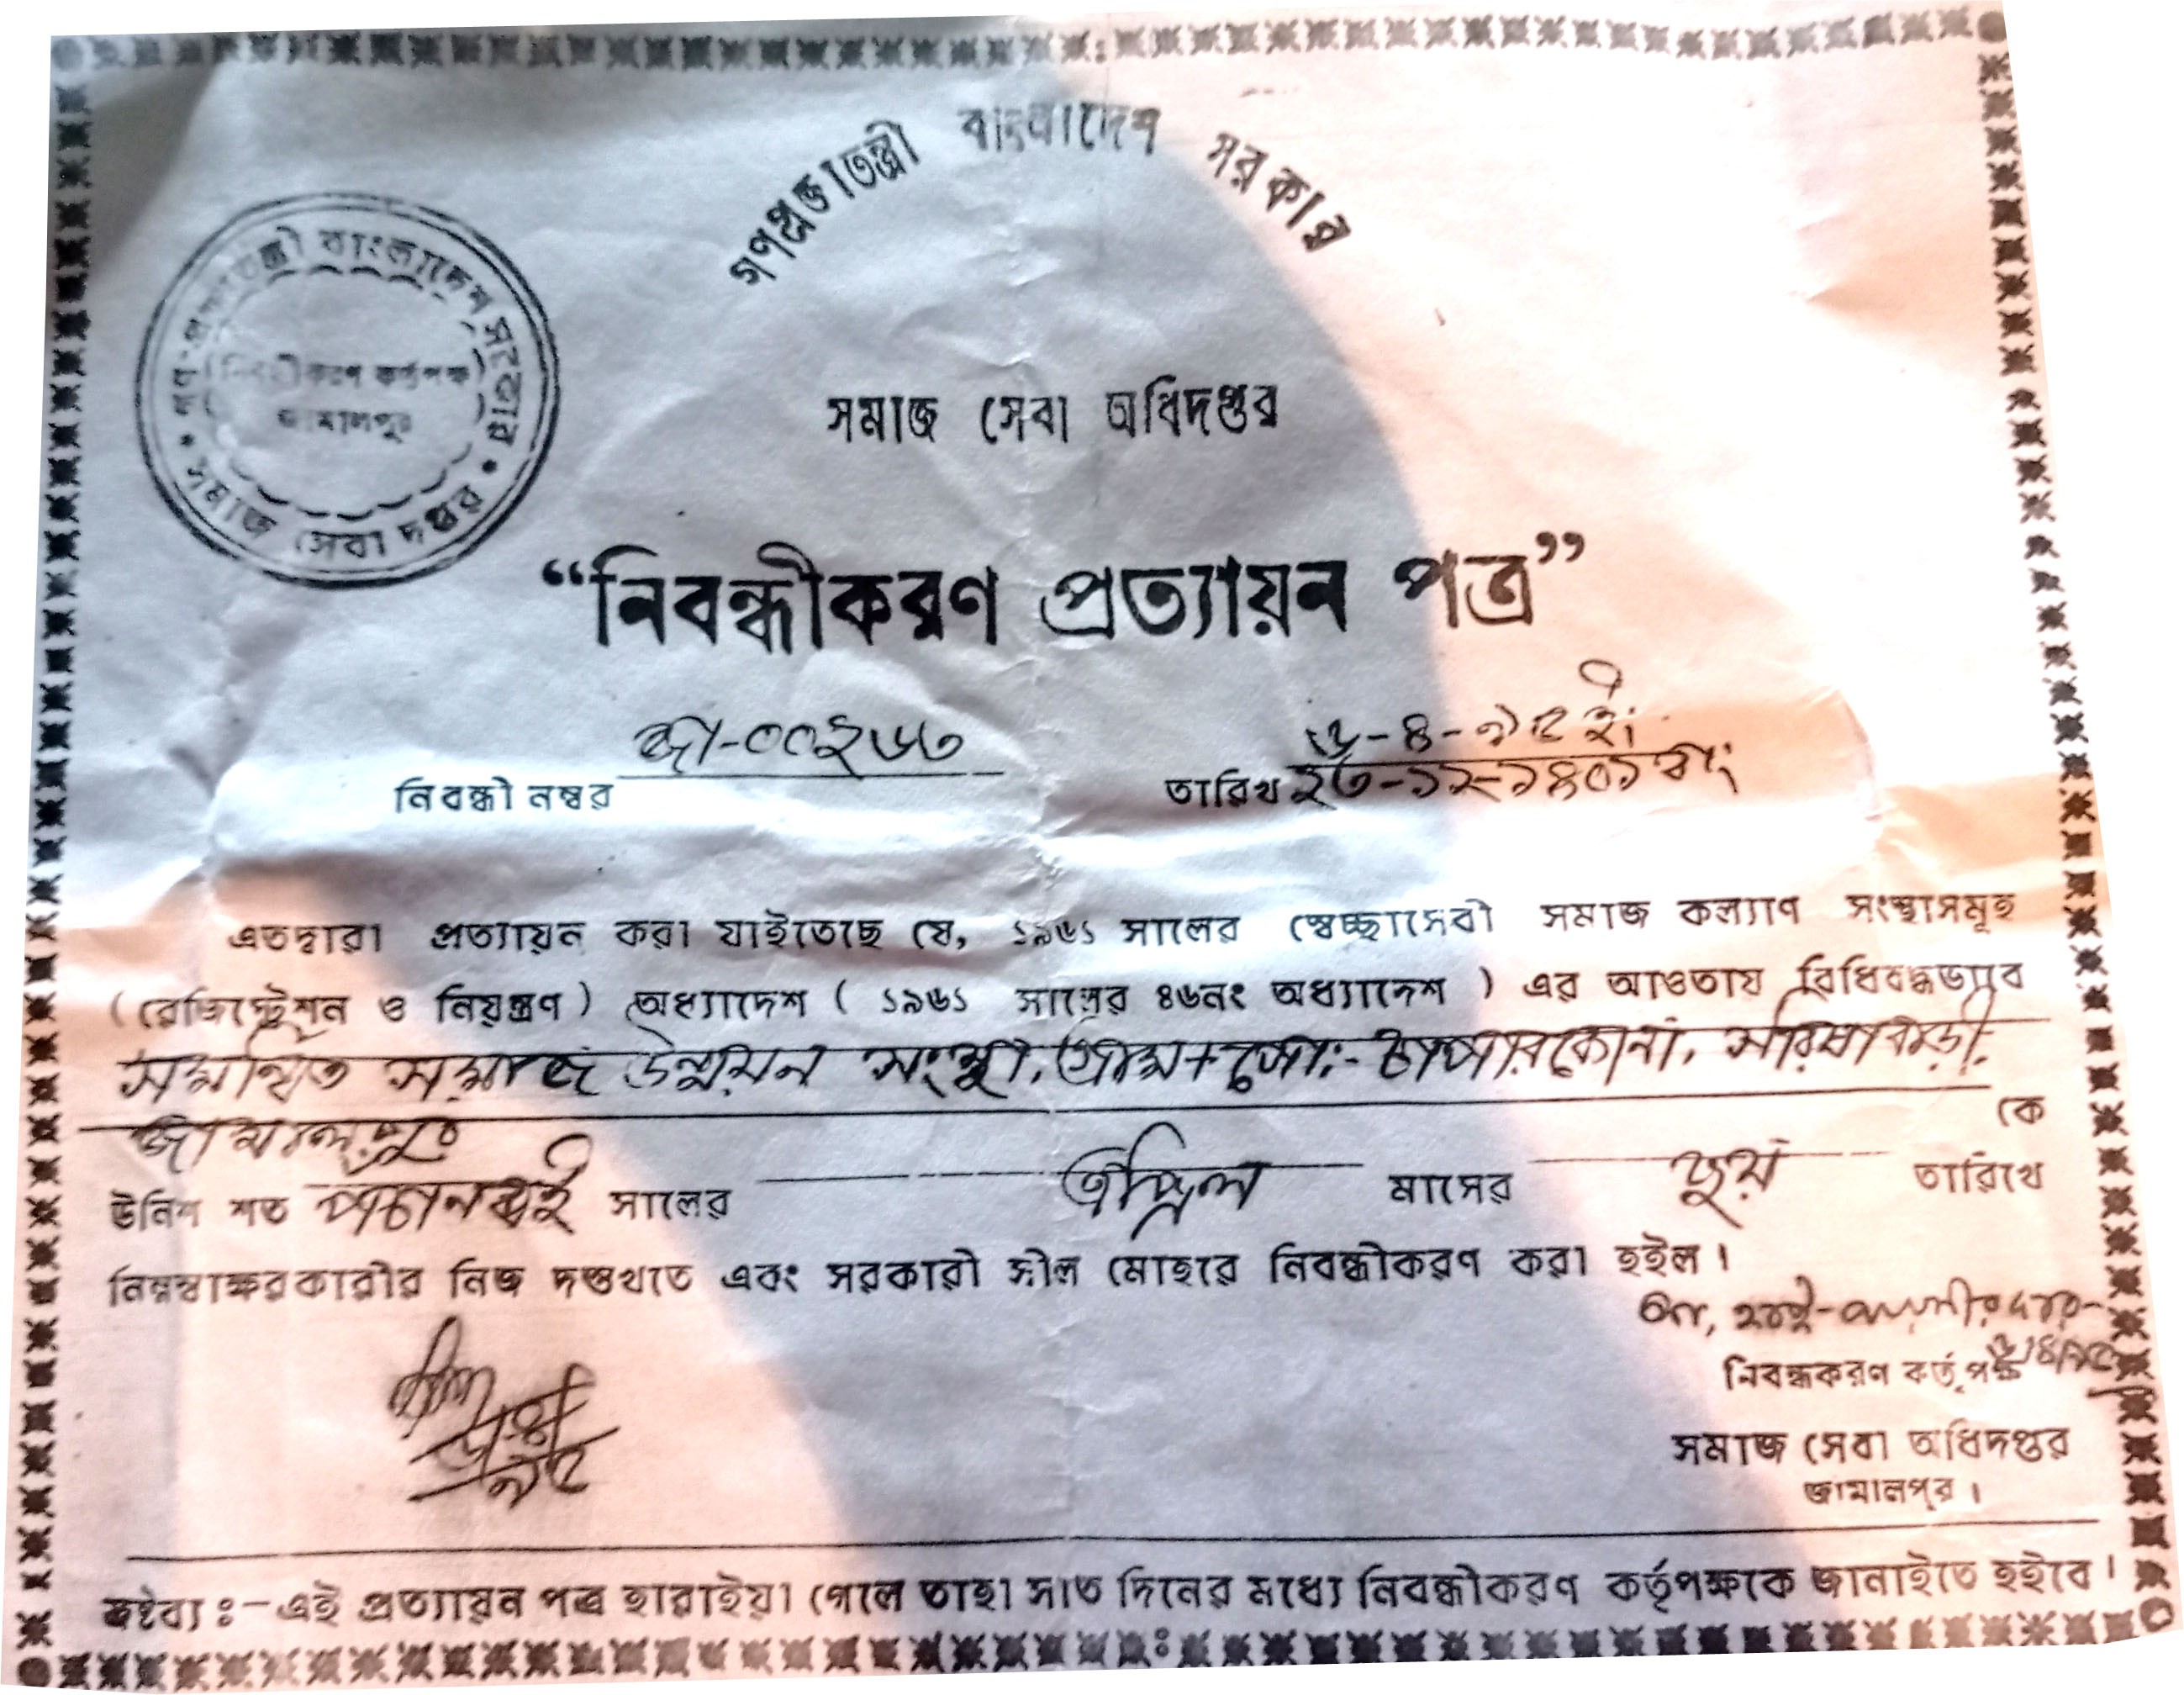 গণপ্রজাতন্ত্রী বাংলাদেশ সরকার
গণ-প্রজাতন্ত্রী বাংলাদেশ সরকার
নিবন্ধীকরণ কর্তৃপক্ষ
জামালপুর
সমাজ সেবা দপ্তর
সমাজ সেবা অধিদপ্তর
“নিবন্ধীকরণ প্রত্যায়ন পত্র”
নিবন্ধী নম্বর জা-০০২৬৩
তারিখ ৬-৪-৯৫ ইং
২৩-১২-১৪০১ বাং
এতদ্বারা প্রত্যায়ন করা যাইতেছে যে, ১৯৬১ সালের স্বেচ্ছাসেবী সমাজ কল্যাণ সংস্থাসমূহ
(রেজিস্ট্রেশন ও নিয়ন্ত্রণ) অধ্যাদেশ ( ১৯৬১ সালের ৪৬নং অধ্যাদেশ ) এর আওতায় বিধিবদ্ধভাবে
সমন্বিত সমাজ উন্নয়ন সংস্থা, গ্রাম+পো:- চাপারকোনা, সরিষাবাড়ী,
জামালপুর কে
উনিশ শত পঁচানব্বই সালের এপ্রিল মাসের ছয় তারিখে
নিম্নস্বাক্ষরকারীর নিজ দস্তখতে এবং সরকারী সীল মোহরে নিবন্ধীকরণ করা হইল ।
নিবন্ধকরণ কর্তৃপক্ষ
সমাজ সেবা অধিদপ্তর
জামালপুর ।
দ্রষ্টব্য :- এই প্রত্যায়ন পত্র হারাইয়া গেলে তাহা সাত দিনের মধ্যে নিবন্ধীকরণ কর্তৃপক্ষকে জানাইতে হইবে ।